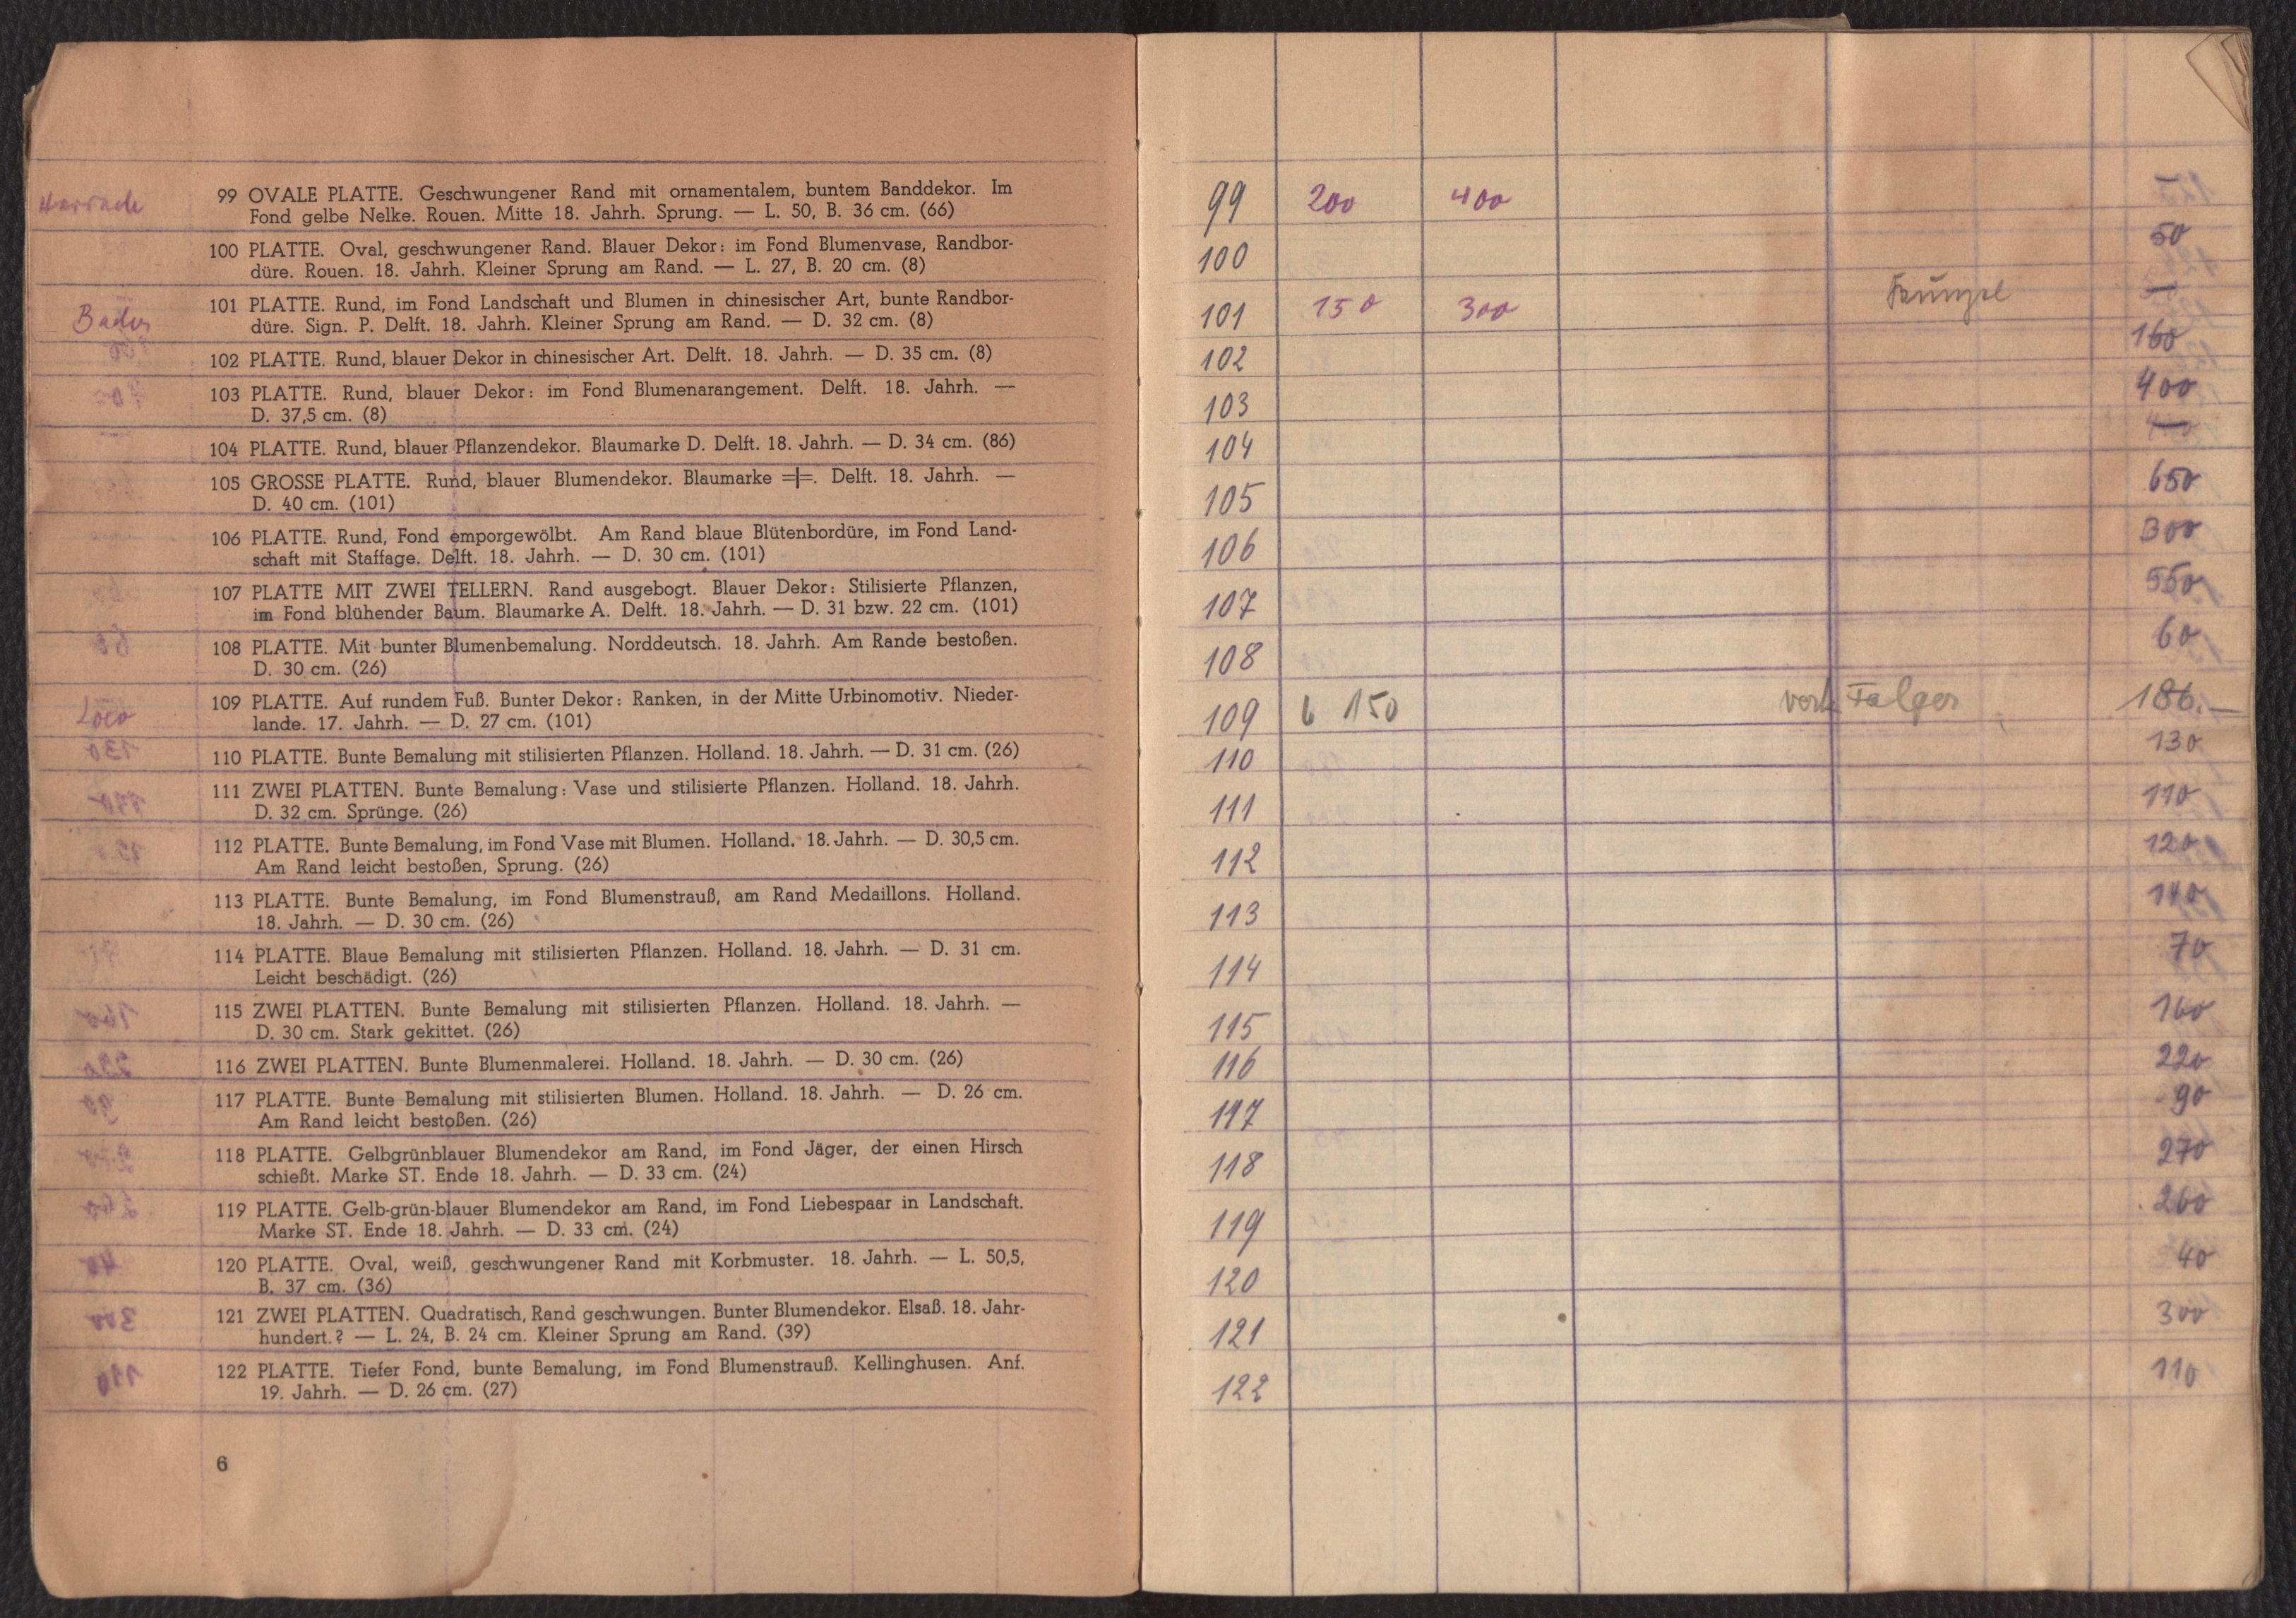 99 OVALE PLATTE. Geschwungener Rand mit ornamentalem, buntem Banddekor. Im
Fond gelbe Nelke. Rouen. Mitte 18. Jahrh. Sprung. — L. 50, B. 36 cm. (66)
100 PLATTE. Oval, geschwungener Rand. Blauer Dekor: im Fond Blumenvase, Randbor-
düre. Rouen. 18. Jahrh. Kleiner Sprung am Rand. — L. 27, B. 20 cm. (8)
101 PLATTE. Rund, im Fond Landschaft und Blumen in chinesischer Art, bunte Randbor-
düre. Sign. P. Delft. 18. Jahrh. Kleiner Sprung am Rand. — D. 32 cm. (8)
102 PLATTE. Rund, blauer Dekor in chinesischer Art. Delft. 18. Jahrh. — D. 35 cm. (8)
103 PLATTE. Rund, blauer Dekor: im Fond Blumenarangement. Delft. 18. Jahrh. —
D. 37,5 cm. (8)
104 PLATTE. Rund, blauer Pflanzendekor. Blaumarke D. Delft. 18. Jahrh. — D. 34 cm. (86)
105 GROSSE PLATTE. Rund, blauer Blumendekor. Blaumarke =|=. Delft. 18. Jahrh. —
D. 40 cm. (101)
106 PLATTE. Rund, Fond emporgewölbt. Am Rand blaue Blütenbordüre, im Fond Land-
schaft mit Staffage. Delft. 18. Jahrh. — D. 30 cm. (101)
107 PLATTE MIT ZWEI TELLERN. Rand ausgebogt. Blauer Dekor: Stilisierte Pflanzen,
im Fond blühender Baum. Blaumarke A. Delft. 18. Jahrh. — D. 31 bzw. 22 cm. (101)
108 PLATTE. Mit bunter Blumenbemalung. Norddeutsch. 18. Jahrh. Am Rande bestoßen.
D. 30 cm. (26)
Loco
109 PLATTE. Auf rundem Fuß. Bunter Dekor: Ranken, in der Mitte Urbinomotiv. Nieder-
lande. 17. Jahrh. — D. 27 cm. (101)
110 PLATTE. Bunte Bemalung mit stilisierten Pflanzen. Holland. 18. Jahrh. — D. 31 cm. (26)
111 ZWEI PLATTEN. Bunte Bemalung: Vase und stilisierte Pflanzen. Holland. 18. Jahrh.
D. 32 cm. Sprünge. (26)
112 PLATTE. Bunte Bemalung, im Fond Vase mit Blumen. Holland. 18. Jahrh. — D. 30,5 cm.
Am Rand leicht bestoßen, Sprung. (26)
113 PLATTE. Bunte Bemalung, im Fond Blumenstrauß, am Rand Medaillons. Holland.
18. Jahrh. — D. 30 cm. (26)
114 PLATTE. Blaue Bemalung mit stilisierten Pflanzen. Holland. 18. Jahrh. — D. 31 cm.
Leicht beschädigt. (26)
115 ZWEI PLATTEN. Bunte Bemalung mit stilisierten Pflanzen. Holland. 18. Jahrh. —
D. 30 cm. Stark gekittet. (26)
116 ZWEI PLATTEN. Bunte Blumenmalerei. Holland. 18. Jahrh. — D. 30 cm. (26)
117 PLATTE. Bunte Bemalung mit stilisierten Blumen. Holland. 18. Jahrh. — D. 26 cm.
Am Rand leicht bestoßen. (26)
118 PLATTE. Gelbgrünblauer Blumendekor am Rand, im Fond Jäger, der einen Hirsch
schießt. Marke ST. Ende 18. Jahrh. — D. 33 cm. (24)
119 PLATTE. Gelb-grün-blauer Blumendekor am Rand, im Fond Liebespaar in Landschaft.
Marke ST. Ende 18. Jahrh. — D. 33 cm. (24)
120 PLATTE. Oval, weiß, geschwungener Rand mit Korbmuster. 18. Jahrh. — L. 50,5,
B. 37 cm. (36)
121 ZWEI PLATTEN. Quadratisch, Rand geschwungen. Bunter Blumendekor. Elsaß. 18. Jahr-
hundert.? — L. 24, B. 24 cm. Kleiner Sprung am Rand. (39)
122 PLATTE. Tiefer Fond, bunte Bemalung, im Fond Blumenstrauß. Kellinghusen. Anf.
19. Jahrh. — D. 26 cm. (27)
6
99 200 400 —
100 50
101 150 300 —
102 160
103 400
104
105 650
106 300
107 550
108 60
109 6 150 186.—
110 130
111 110
112 120
113 140
114 70
115 160
116 220
117 90
118 270
119 260
120 40
121 300
122 110